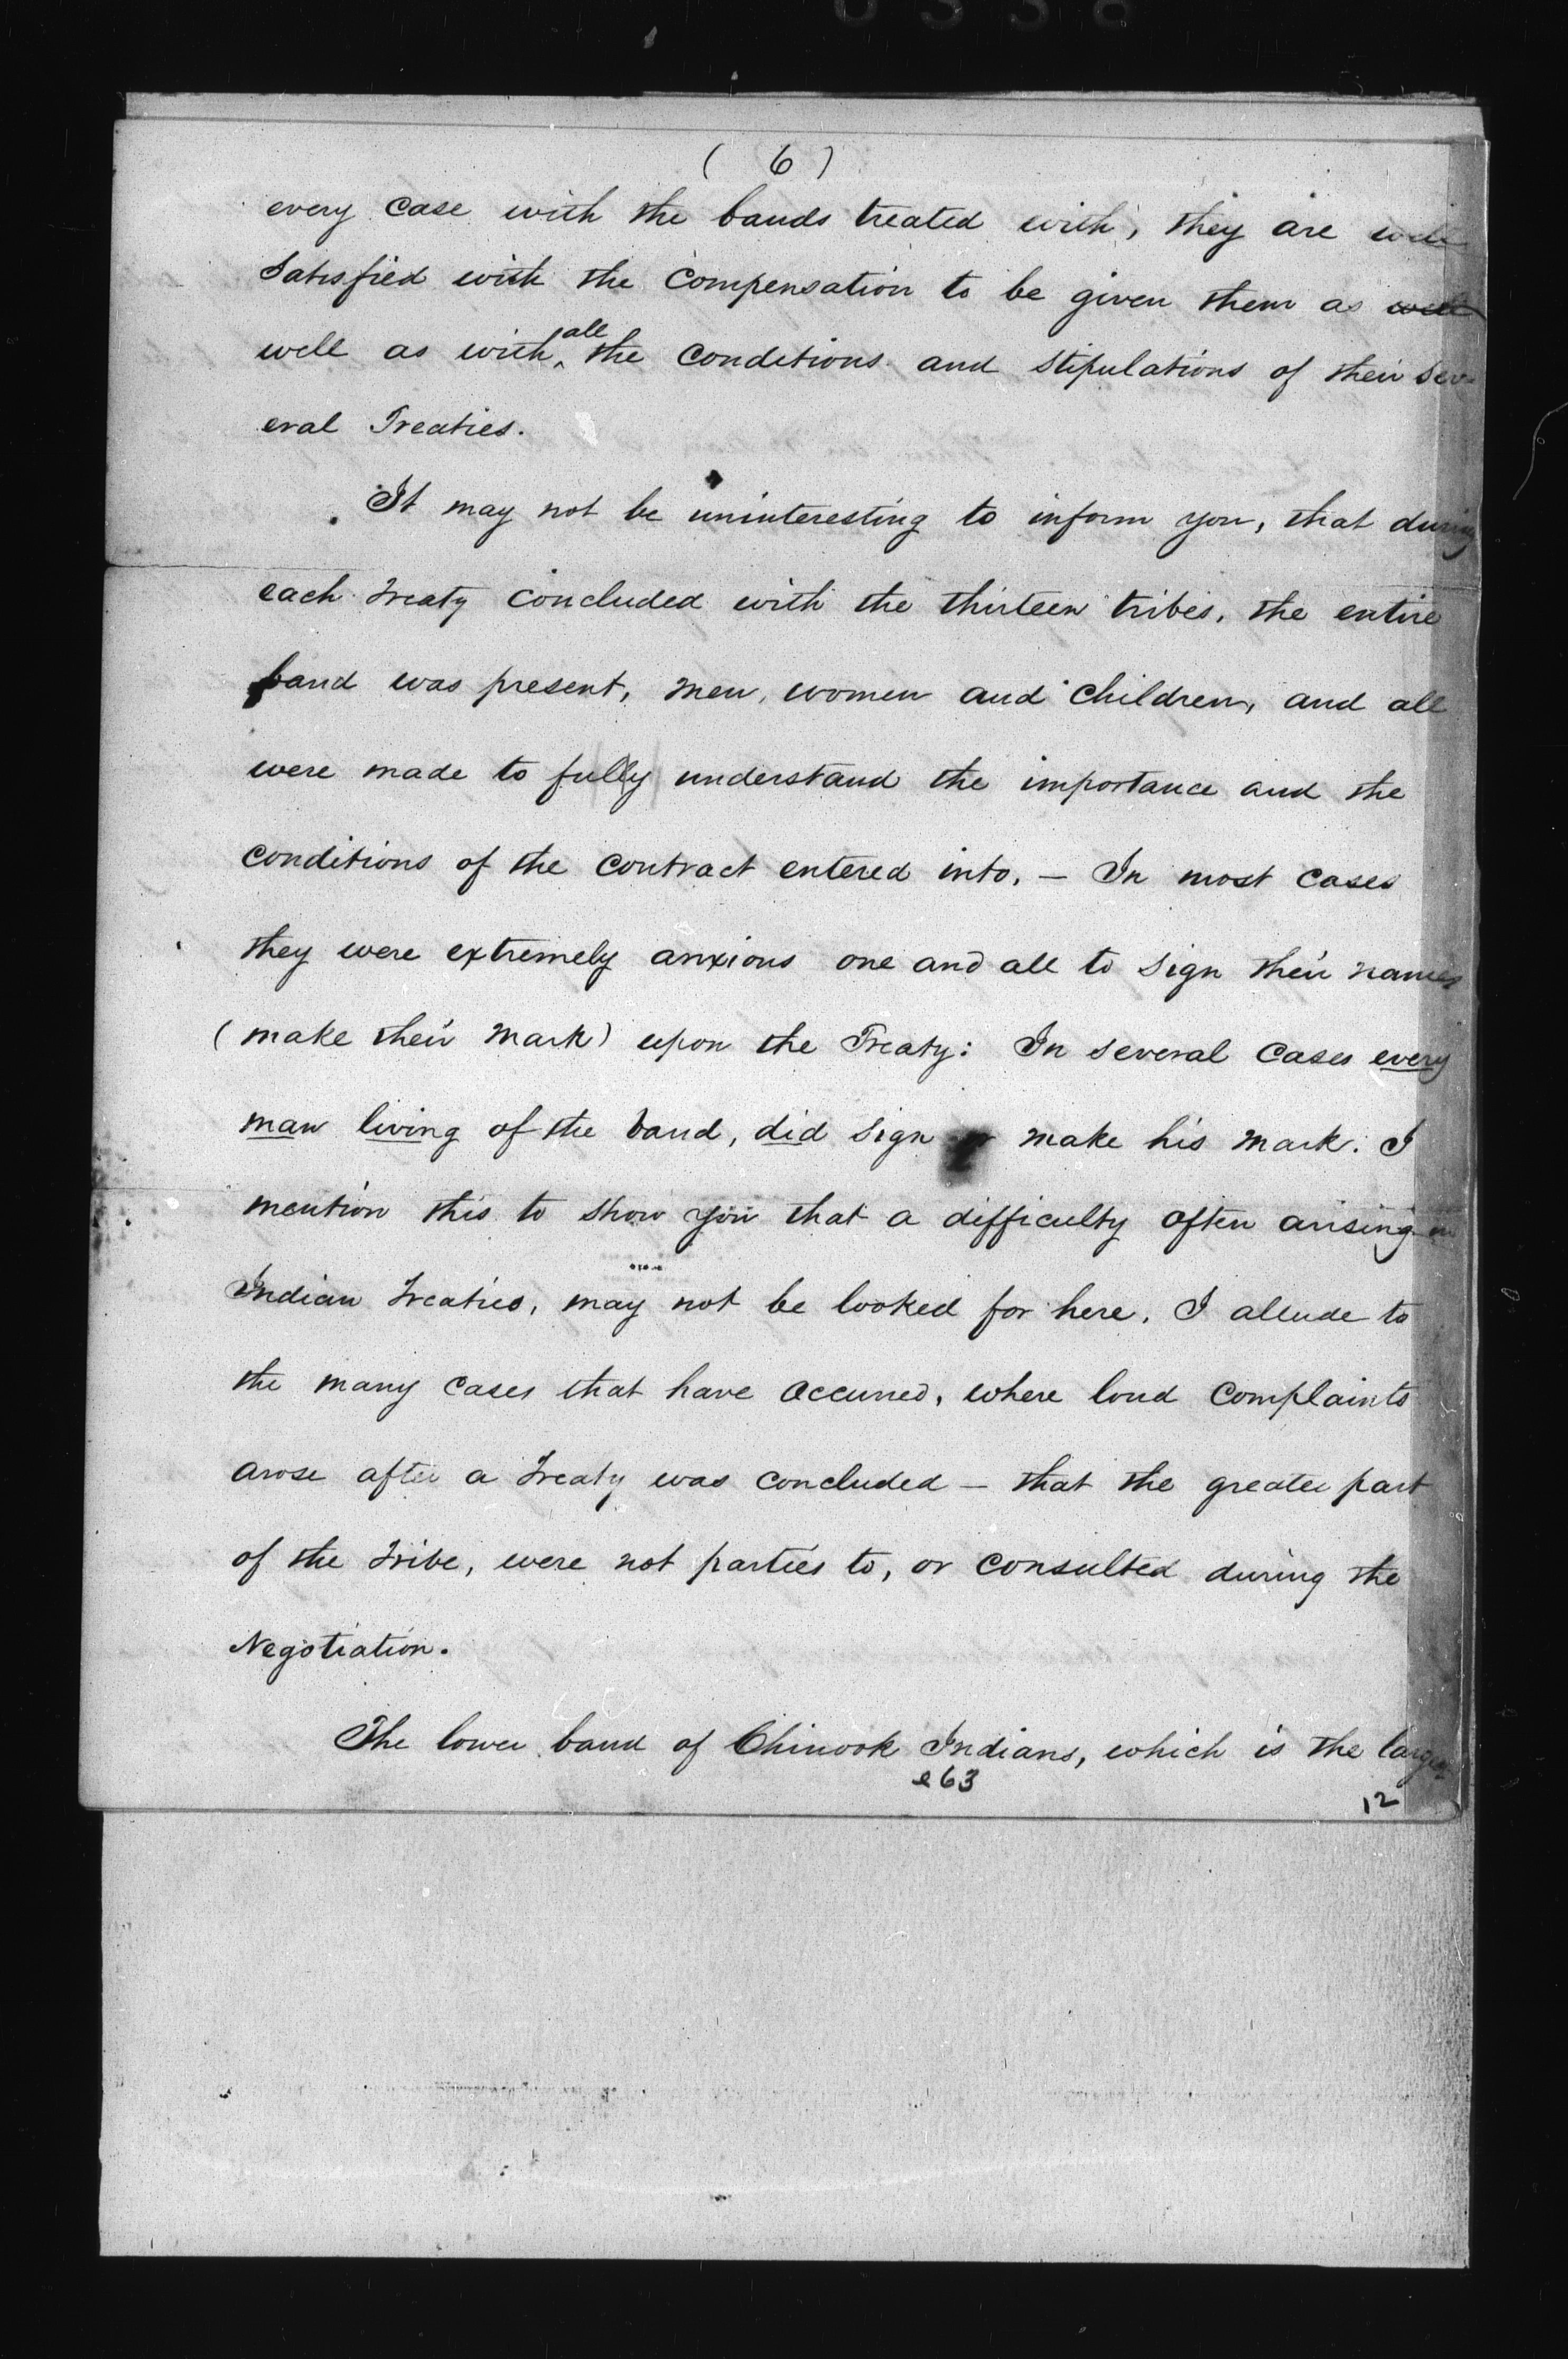 0338
( 6 )
every case with the bands treated with, they are well
satisfied with the compensation to be given them as well
well as with all the conditions and stipulations of their sev-
eral Treaties.
It may not be uninteresting to inform you, that during
each treaty concluded with the thirteen tribes, the entire
band was present, men, women and children, and all
were made to fully understand the importance and the
conditions of the contract entered into. — In most cases
they were extremely anxious one and all to sign their names
(make their mark) upon the Treaty: In several cases every
man living of the band, did sign or make his mark. I
mention this to show you that a difficulty often arising in
Indian treaties, may not be looked for here. I allude to
the many cases that have occurred, where loud complaints
arose after a treaty was concluded — that the greater part
of the tribe, were not parties to, or consulted during the
Negotiation.
The lower band of Chinook Indians, which is the
e63
12